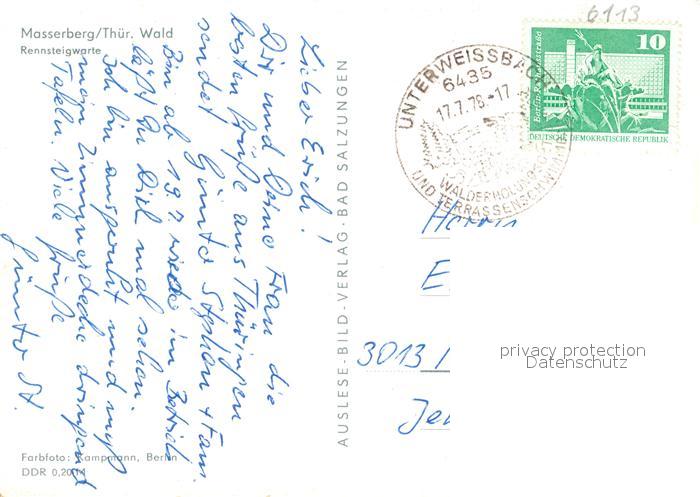 Masserberg/Thür. Wald
Rennsteigwarte
6113
Lieber Erich!
Dir und Deine Frau die
besten Grüße aus Thüringen
sendet Günter Stephan + Fam.
Bin ab 19.7. wieder im Betrieb
läßt Du Dich mal sehen.
Ich bin ausgeruht und muß
mein Zimmerdecke dringend
Tafeln. Viele Grüße
Günter St.
AUSLESE-BILD-VERLAG · BAD SALZUNGEN
UNTERWEISSBACH
6435
17.7.78.-17
WALDERHOLUNGSORT
UND TERRASSENSCHWIMMBAD
Berlin-Rathausstraße
10
DEUTSCHE DEMOKRATISCHE REPUBLIK
Herrn
E
3013 
Je
privacy protection
Datenschutz
Farbfoto: Kampmann, Berlin
DDR 0,20 M